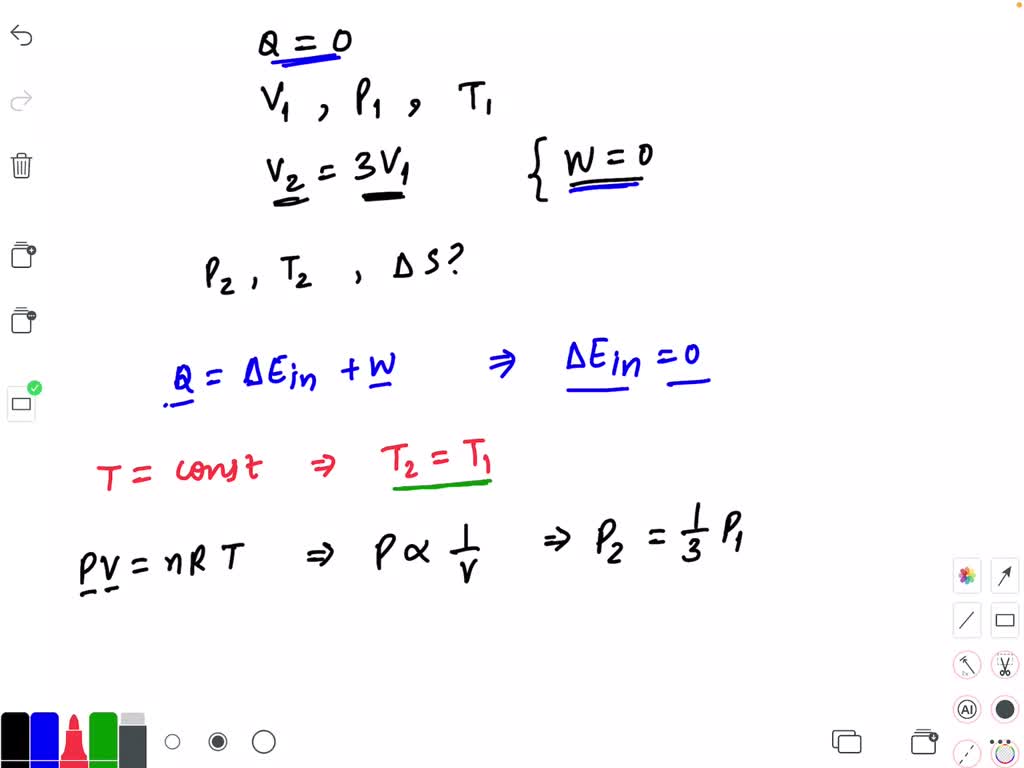 Q = 0
V₁ , P₁ , T₁
V₂ = 3V₁ { W = 0
P₂ , T₂ , Δ S?
Q = ΔEin + W ⇒ ΔEin = 0
T = const ⇒ T₂ = T₁
PV = nRT ⇒ P ∝ 1/V ⇒ P₂ = 1/3 P₁
AI